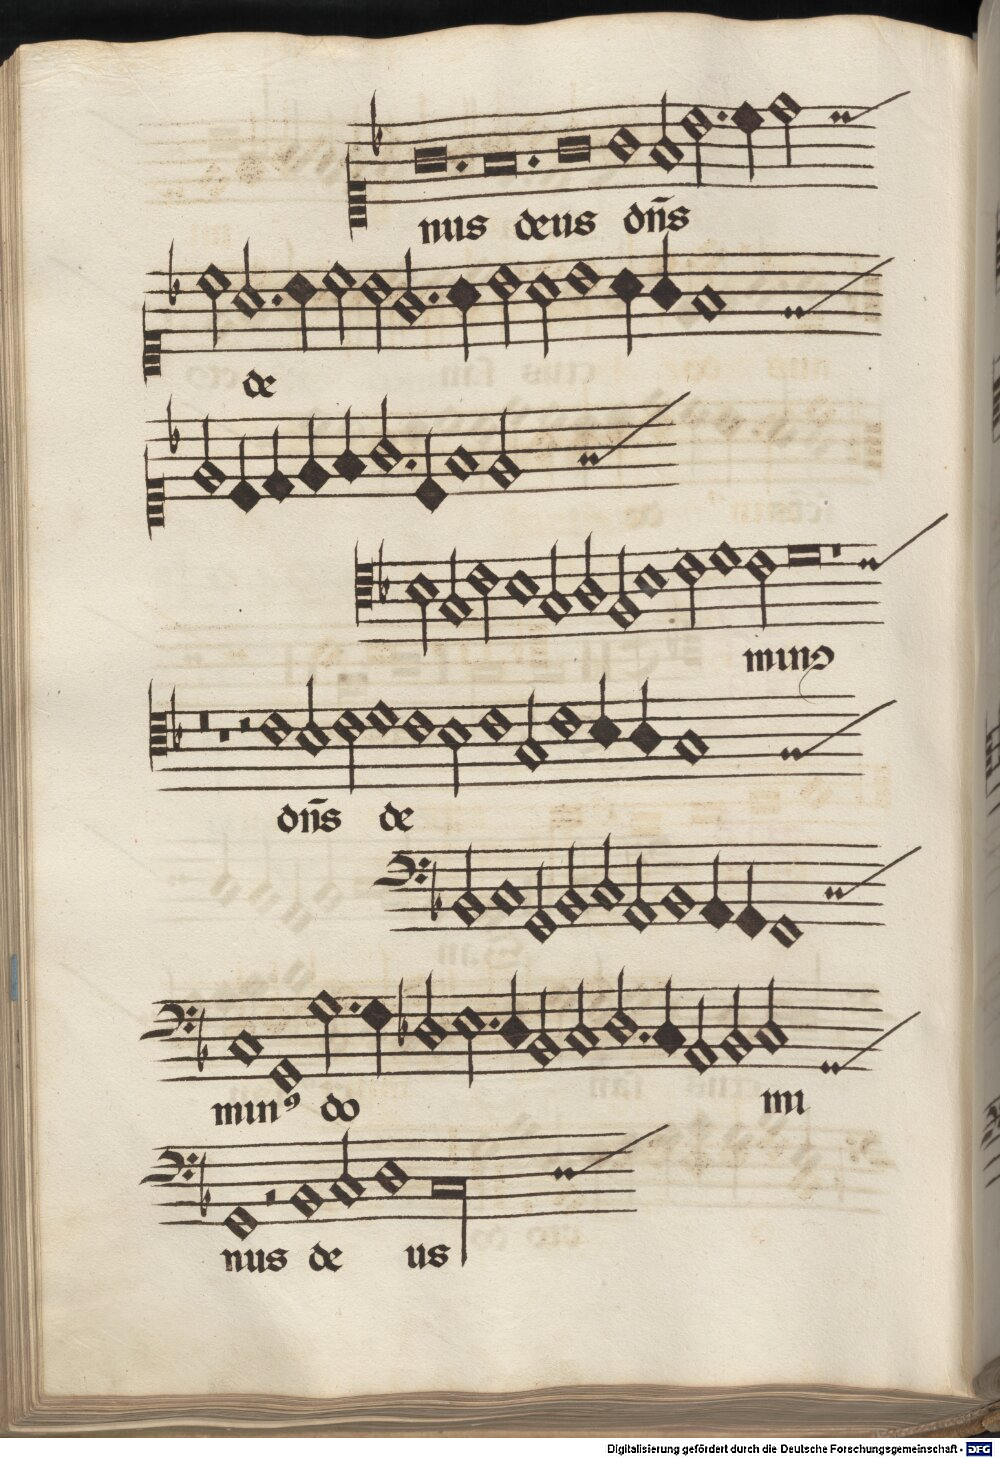 nus deus dn̄s
de
minꝯ
dn̄s de
minꝰ do mi
nus de us
Digitalisierung gefördert durch die Deutsche Forschungsgemeinschaft - DFG